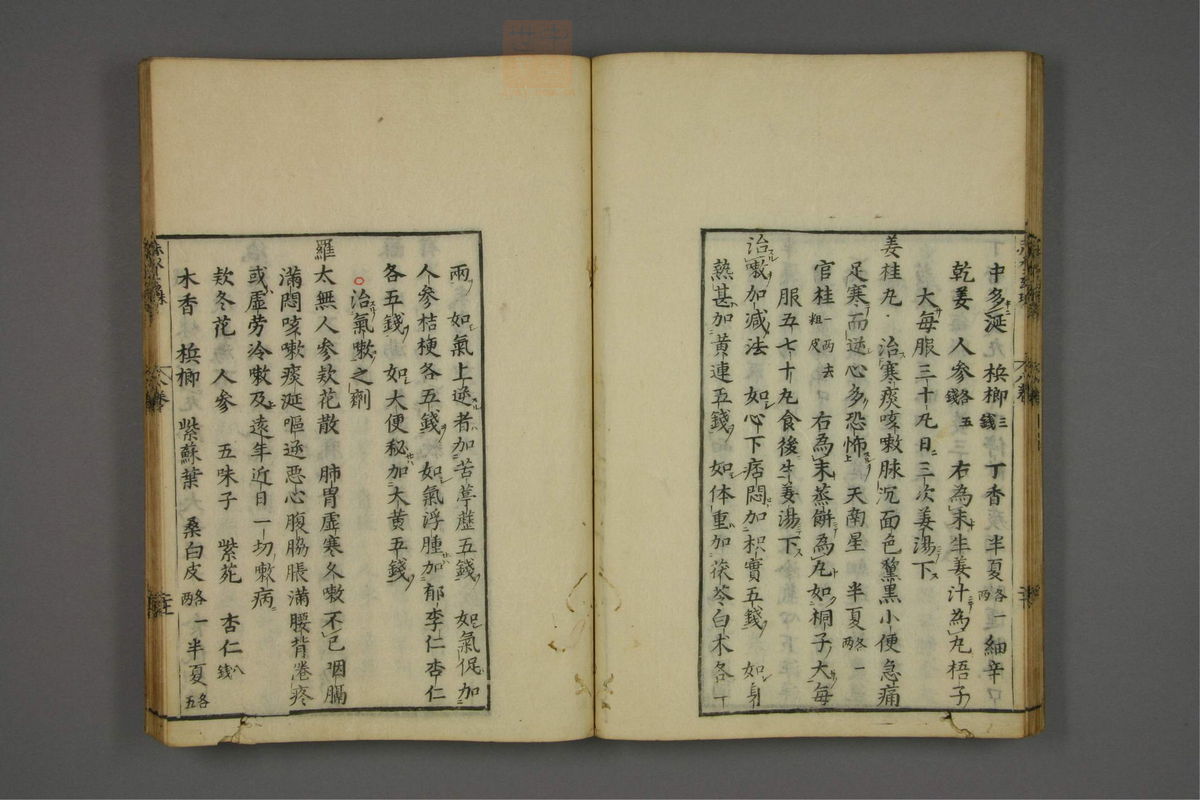 中多涎 檳榔三錢 丁香 半夏各一両 細辛
乾姜 人参各五錢 右為末生姜汁為丸梧子
大毎服三十丸日三次姜湯下
姜桂丸 治寒痰咳嗽脉沉面色黧黑小便急痛
足寒而逆心多恐怖 天南星 半夏各一両
官桂一両去粗皮 右為末蒸餅為丸如桐子大毎
服五七十丸食後生姜湯下
治嗽加减法 如心下痞悶加枳實五錢 如身
熱甚加黄連五錢 如体重加茯苓白朮各一
兩 如氣上逆者加苦葶藶五錢 如氣促加
人参桔梗各五錢 如氣浮腫加郁李仁杏仁
各五錢 如大便秘加大黄五錢
治氣嗽之劑
羅太無人参欵花散 肺胃虚寒久嗽不已咽膈
滿悶咳嗽痰涎嘔逆惡心腹脇脹滿腰背倦疼
或虚劳冷嗽及遠年近日一切嗽病
欵冬花 人参 五味子 紫菀 杏仁八錢
木香 檳榔 紫蘇葉 桑白皮各一両 半夏各五